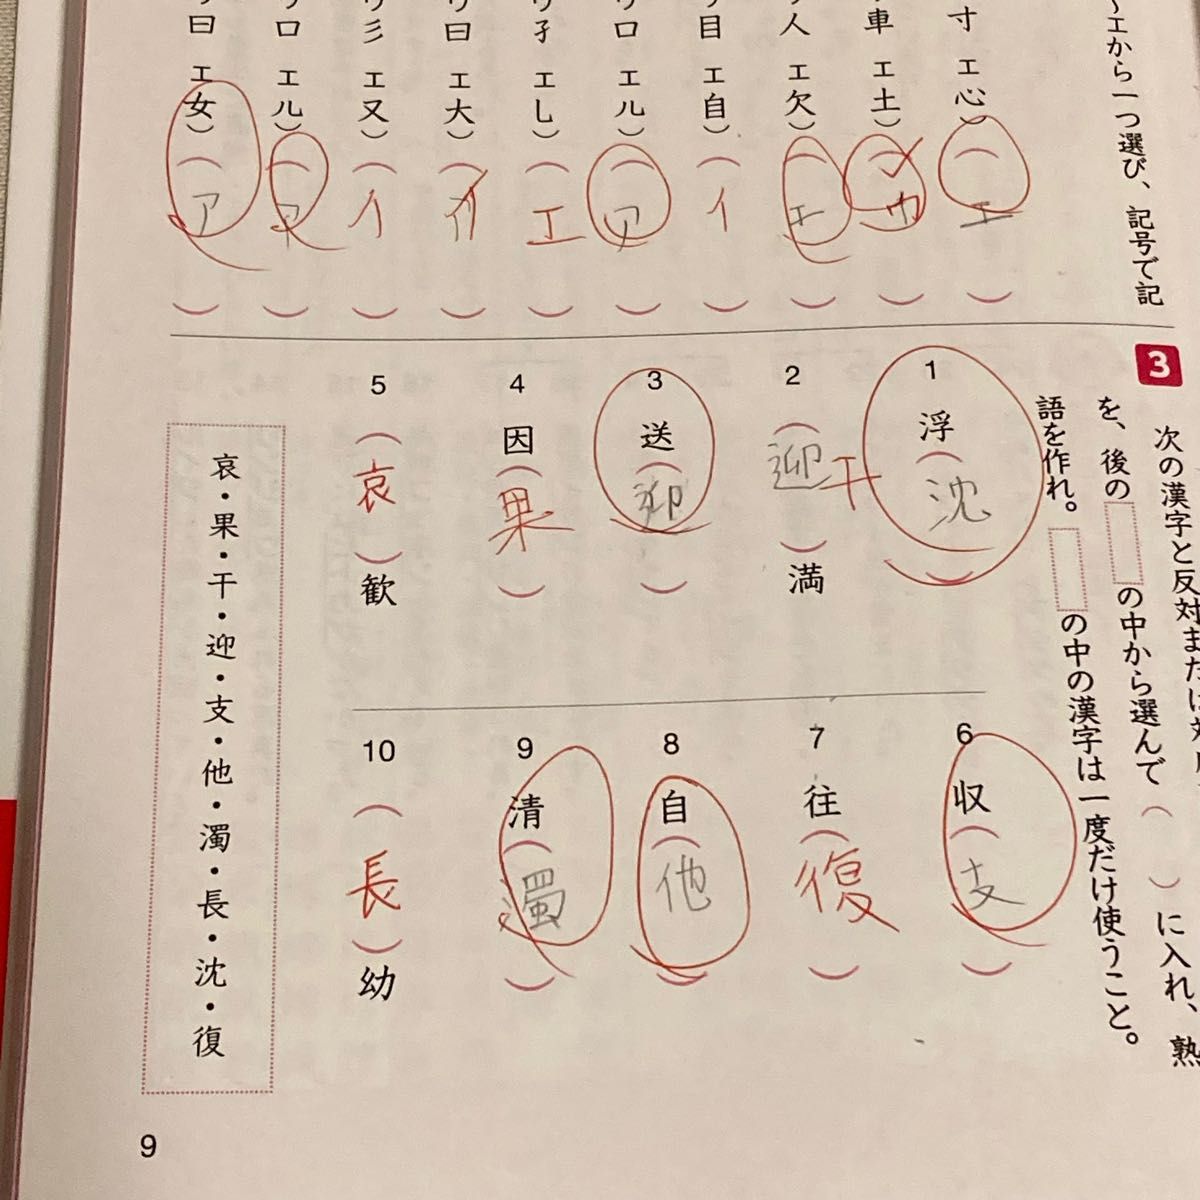 ～エから一つ選び、記号で記
寸 エ 心）（エ）
車 エ 土）（ウ）
人 エ 欠）（エ）
目 エ 自）（イ）
ロ エ ル）（ア）
子 エ し）（エ）
日 エ 大）（イ）
彡 エ 又）（イ）
ロ エ ル）（ア）
日 エ 女）（ア）
3
次の漢字と反対または対
を、後の の中から選んで（ ）に入れ、熟
語を作れ。 の中の漢字は一度だけ使うこと。
1 浮（沈）
2 （迎）満
干
3 送（迎）
4 因（果）
5 （哀）歓
6 収（支）
7 往（復）
8 自（他）
9 清（濁）
10 （長）幼
哀・果・干・迎・支・他・濁・長・沈・復
9